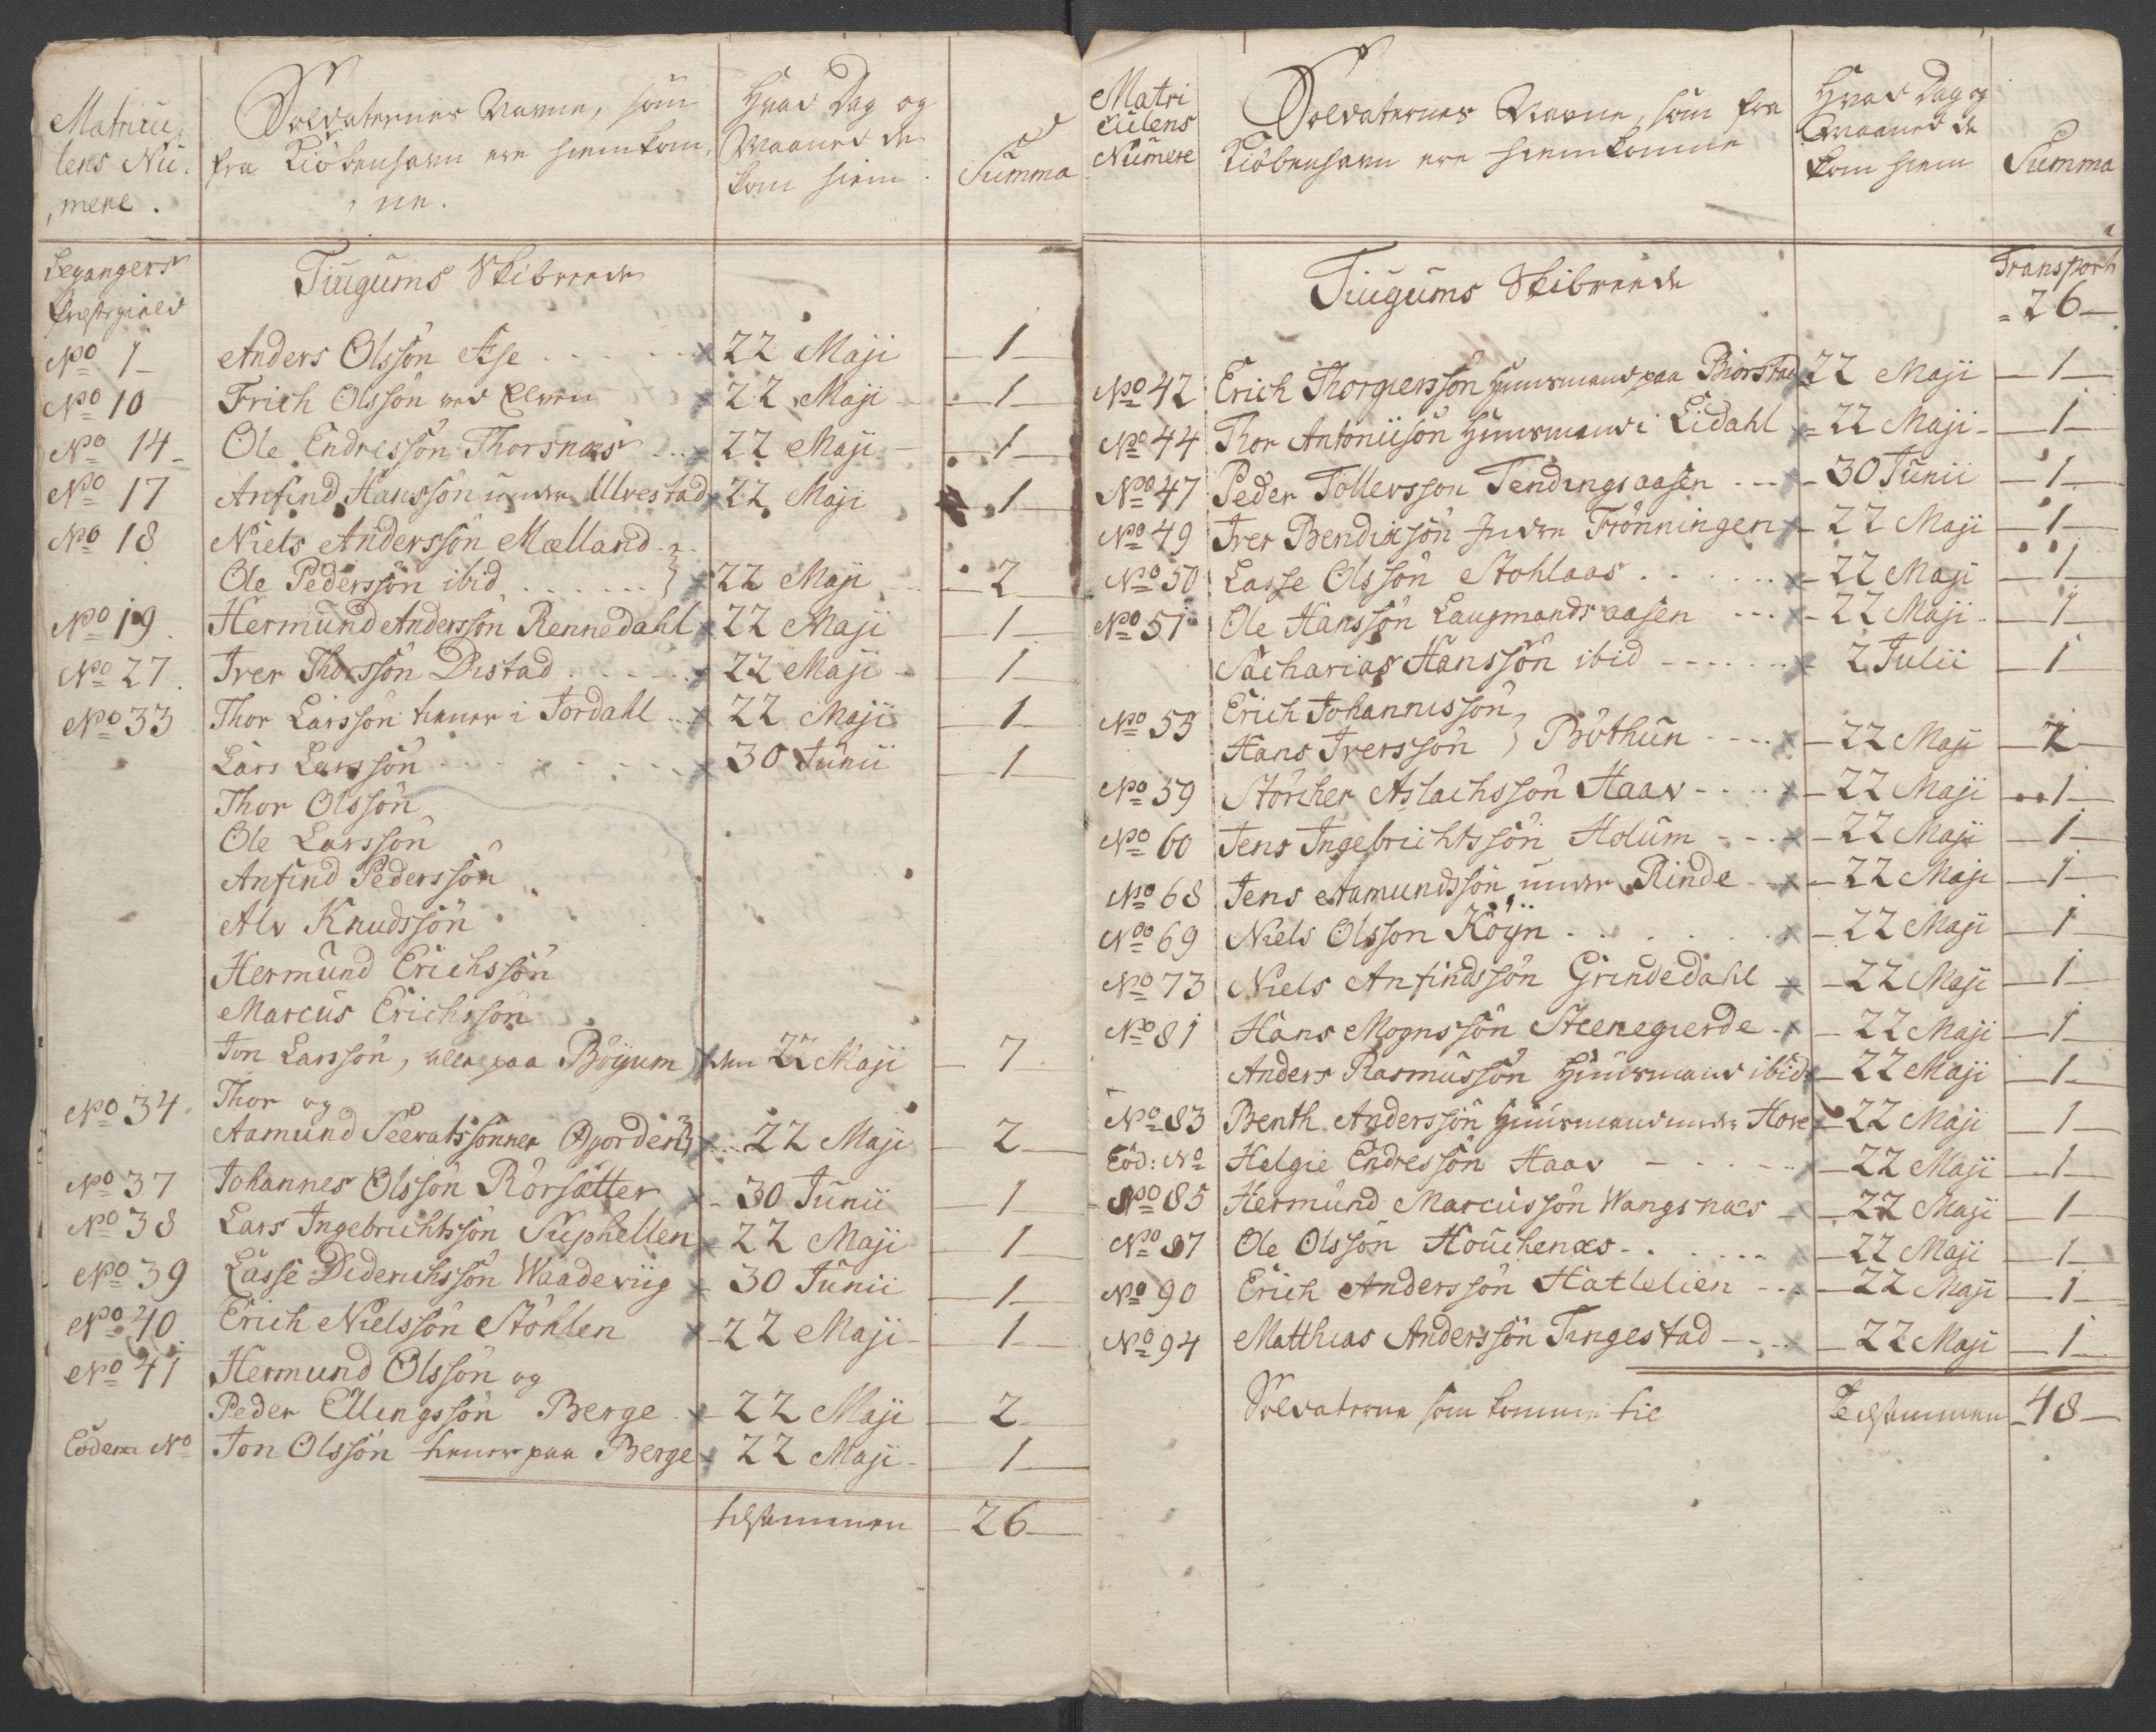 Matricu,
lens Nú,
,mere.
Soldaternes Navne, som
fra Kiöbenhavn ere hiemkom,
,ne.
Hvad Dag og
Maaned de
kom hiem.
Summa
Leganger
Præstegield
Tiugums Skibreede
No 1 Anders Olssön Ase 22 Maji 1
No 10 Erich Olssön ved Elven 22 Maji 1
No 14 Ole Endressön Thorsnæs 22 Maji 1
No 17 Anfind Hanssön under Ulvestad 22 Maji 1
No 18 Niels Anderssön Mælland
Ole Pederssön ibid 22 Maji 2
No 19 Hermund Anderssön Rennedahl 22 Maji 1
No 27 Iver Thorssön Distad 22 Maji 1
No 33 Thor Larssön tiener i Jordahl 22 Maji 1
Lars Larssön 30 Junii 1
Thor Olssön
Ole Larssön
Anfind Pederssön
Alv Knudssön
Hermund Erichssön
Marcus Erichssön
Jon Larssön, alle paa Böyum den 22 Maji 7
No 34 Thor og
Aamund Seevatssönner Ojorden 22 Maji 2
No 37 Johannes Olssön Rörsätter 30 Junii 1
No 38 Lars Ingebrichtssön Suphellen 22 Maji 1
No 39 Lasse Diderichssön Waadeviig 30 Junii 1
No 40 Erich Nielssön Stöhlen 22 Maji 1
No 41 Hermund Olssön og
Peder Ellingssön Berge 22 Maji 2
Eodem No Jon Olssön tiener paa Berge 22 Maji 1
tilsammen 26
Matri
culens
Numere
Soldaternes Navne, som fra
Kiöbenhavn ere hiemkomne
Hvad Dag og
Maaned de
kom hiem
Summa
Tiugums Skibreede
Transport
26
No 42 Erich Thorgierssön Huusmand paa Biorstad 22 Maji 1
No 44 Thor Antoniisön Huusmand i Lidahl 22 Maji 1
No 47 Peder Tollevsson Tendingsaasen 30 Junii 1
No 49 Iver Bendixsön Indre Frönningen 22 Maji 1
No 50 Lasse Olssön Stohlaas 22 Maji 1
No 51 Ole Hanssön Laugmandsaasen 22 Maji 1
Sacharias Hanssön ibid 2 Julii 1
No 55 Erich Johannissön
Hans Iverssön Böthun 22 Maji 2
No 59 Störcher Aslachssön Haav 22 Maji 1
No 60 Jens Ingebrichtssön Holum 22 Maji 1
No 68 Jens Aamundssön under Rinde 22 Maji 1
No 69 Niels Olsson Röyn 22 Maji 1
No 73 Niels Anfindssön Grindedahl 22 Maji 1
No 81 Hans Mognssön Steenegierde 22 Maji 1
Anders Rasmussön Huusmand ibid 22 Maji 1
No 83 Benth Anderssön Huusmand under Hove 22 Maji 1
Eod: No Helgie Endressön Haav 22 Maji 1
No 85 Hermund Marcussön Wangsnæs 22 Maji 1
No 87 Ole Olssön Houchenæs 22 Maji 1
No 90 Erich Anderssön Hatlelien 22 Maji 1
No 94 Matthias Anderssön Tingestad 22 Maji 1
Soldaterne som komme til
Tilsammen 48